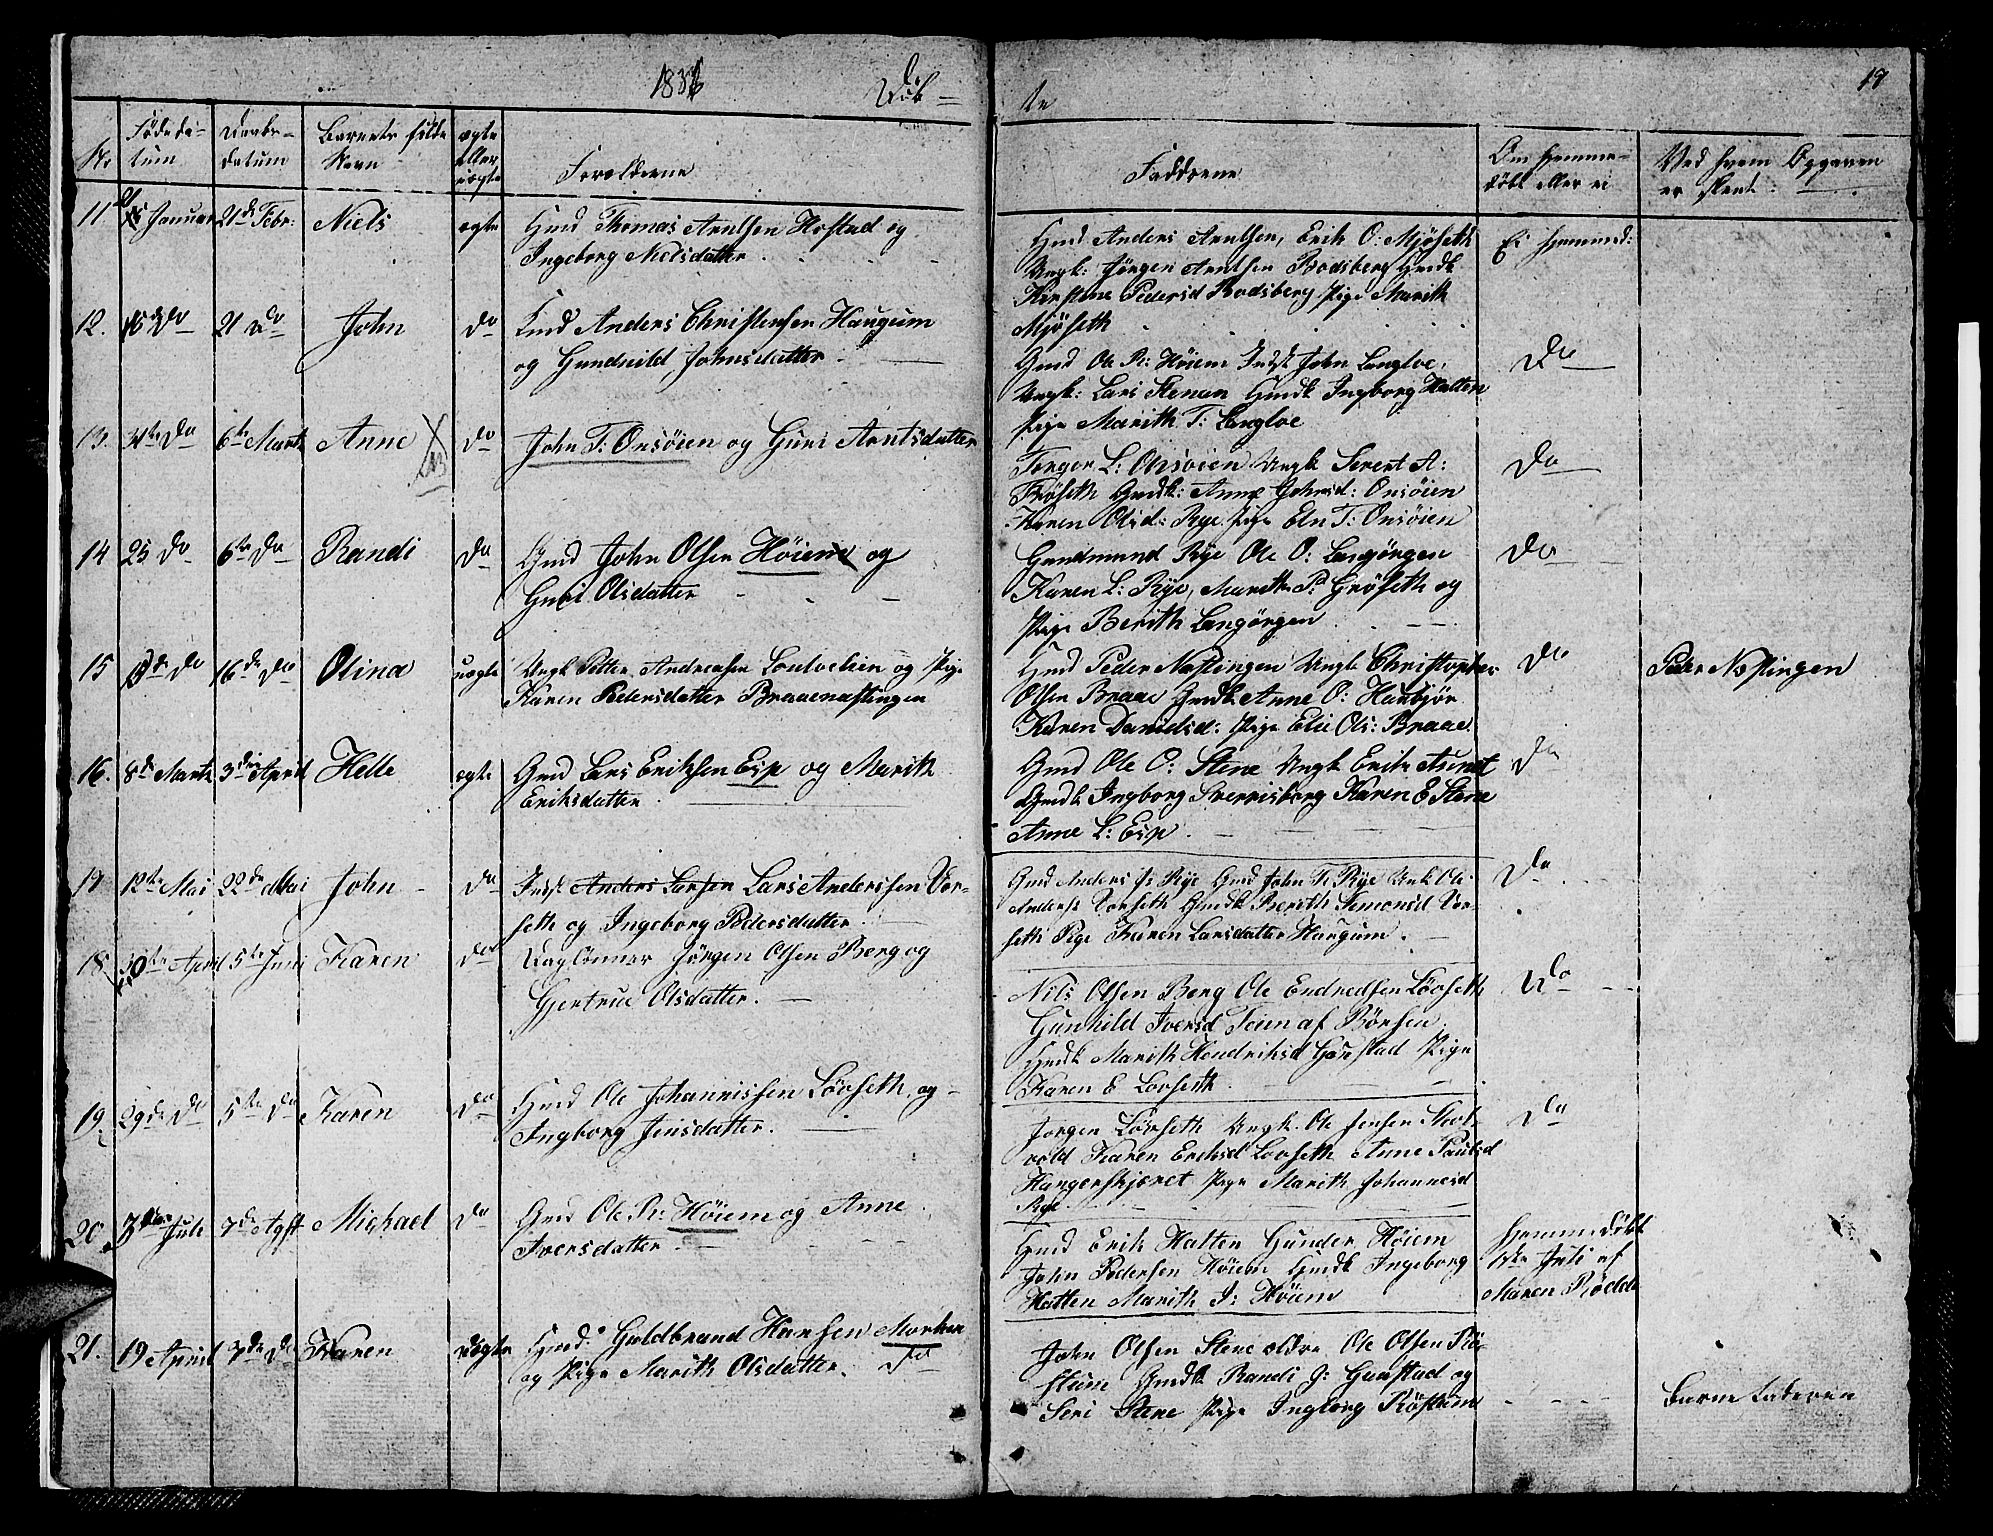 1836 Døb-
te 19
No
Fødeda-
tum
Daabs-
datum
Barnets fulde
Navn
ægte
eller
uægte
Forældrene
Fadderne
Om hjemme-
døbt eller ei
Ved hvem Opgaven
er skeet.
11 Januar 21de Febr: Niels ægte Gmd Thomas Arntsen Hostad og
Ingeborg Nielsdatter
Gmd Anders Arntsen, Erik O: Mjöseth
Ungk: Jörgen Arntsen Rodsberg Gmdk
Kirstene Pedersd Rodsberg Pige Marith
Mjöseth
Ei hjemmed:
12. Do 21 Do John Do Gmd Anders Christensen Haugum
og Gundnild Johnsdatter
Gmd Ole P: Höiem Indst John Langloe,
Ungk: Lars Stenan Gmdk Ingborg Hatten
Pige Marith T: Langloe
Do
13. Do 6te Marts Anne Do John T: Onsöien og Guri Arntsdatter
Torger L: Onsöien Ungk Serert A:
Fröseth Gmdk: Anne Johnsd: Onsöien
Karen Olsd: Rye Pige Eln T: Onsöien
Do
14 25 Do 6te Do Randi Do Gmd John Olsen Höiem og
Guri Olsdatter
Gundmund Rye Ole O: Langörgen
Karen L: Rye, Marith P: Gröseth og
Pige Berith Langörgen
Do
15 Do 16de Do Olina uægte Ungk Petter Andreasen og Pige
Karen Pedersdatter Braaenastingen
Gmd Peder Nastingen Ungk Christopher
Olsen Braae Gmdk Anne O: Haubjör
Karen Danielsd: Pige Elie Ols: Braae
Do Peder Nastingen
16. 8de Marts 3die April Helle ægte Gmd Lars Eriksen Esp og Marith
Eriksdatter
Gmd Ole O: Stene Ungk Erik
Gmdk Ingborg Sverrisborg Karen E Stene
Anne L: Esp
Do
17 12te Mai 22de Mai John Do Indst Anders Larsen Lars Anderssen Vor-
seth og Ingeborg Pedersdatter
Gmd Anders J: Rye Gmd John T: Rye Unk Ole
Anders: Vorseth Gmdk Berith Simonsd Vor-
seth Pige Karen Larsdatter Haugum.
Do
18 April 5te Juni Karen Do Daglönner Jörgen Olsen Berg og
Gjertrue Olsdatter.
Nils Olsen Berg Ole Endredsen Lövseth
Gunhild Iversd Teien af Börsen
Gmdk Marith Hendriksd Pige
Karen E Lovseth
Do
19. 29de Do 5te Do Karen Do Gmd Ole Johannissen Lövseth og
Ingborg Jensdatter.
Jorgen Lövseth Ungk. Ole Jensen Skol-
vold Karen Eriksd Lovseth Anne Paulsd
Hangerskjæret Pige Marith Johannesd
Rye
Do
20 Juli 7de Agst Michael Do Gmd Ole P: Höiem og Anne
Iversdatter
Gmd Erik Hatten Gunder Höiem
John Pedersen Höiem Gmdk Ingeborg
Hatten Marith I: Höiem
Hjemmedöbt
Juli af
Maren Rödde
21. 19 April 7de Do Karen uægte Gmd Guldbrand Hansen Morken
og Pige Marith Olsdatter.
John Olsen Stene ældre Ole Olsen Rö-
stum Gmdk Randi J: Gunstad og
Seri Stene Pige Ingborg Röstum
Barne